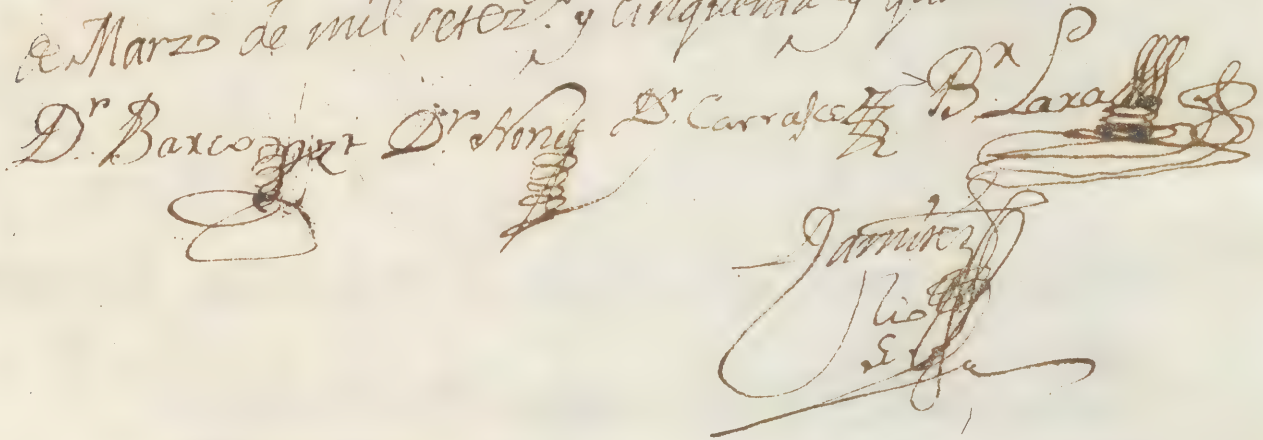 de Marzo de mil setez.s y cinquenta y
Dr. Barco Dr. Dr. Carrasco Br. Lara
Ramirez